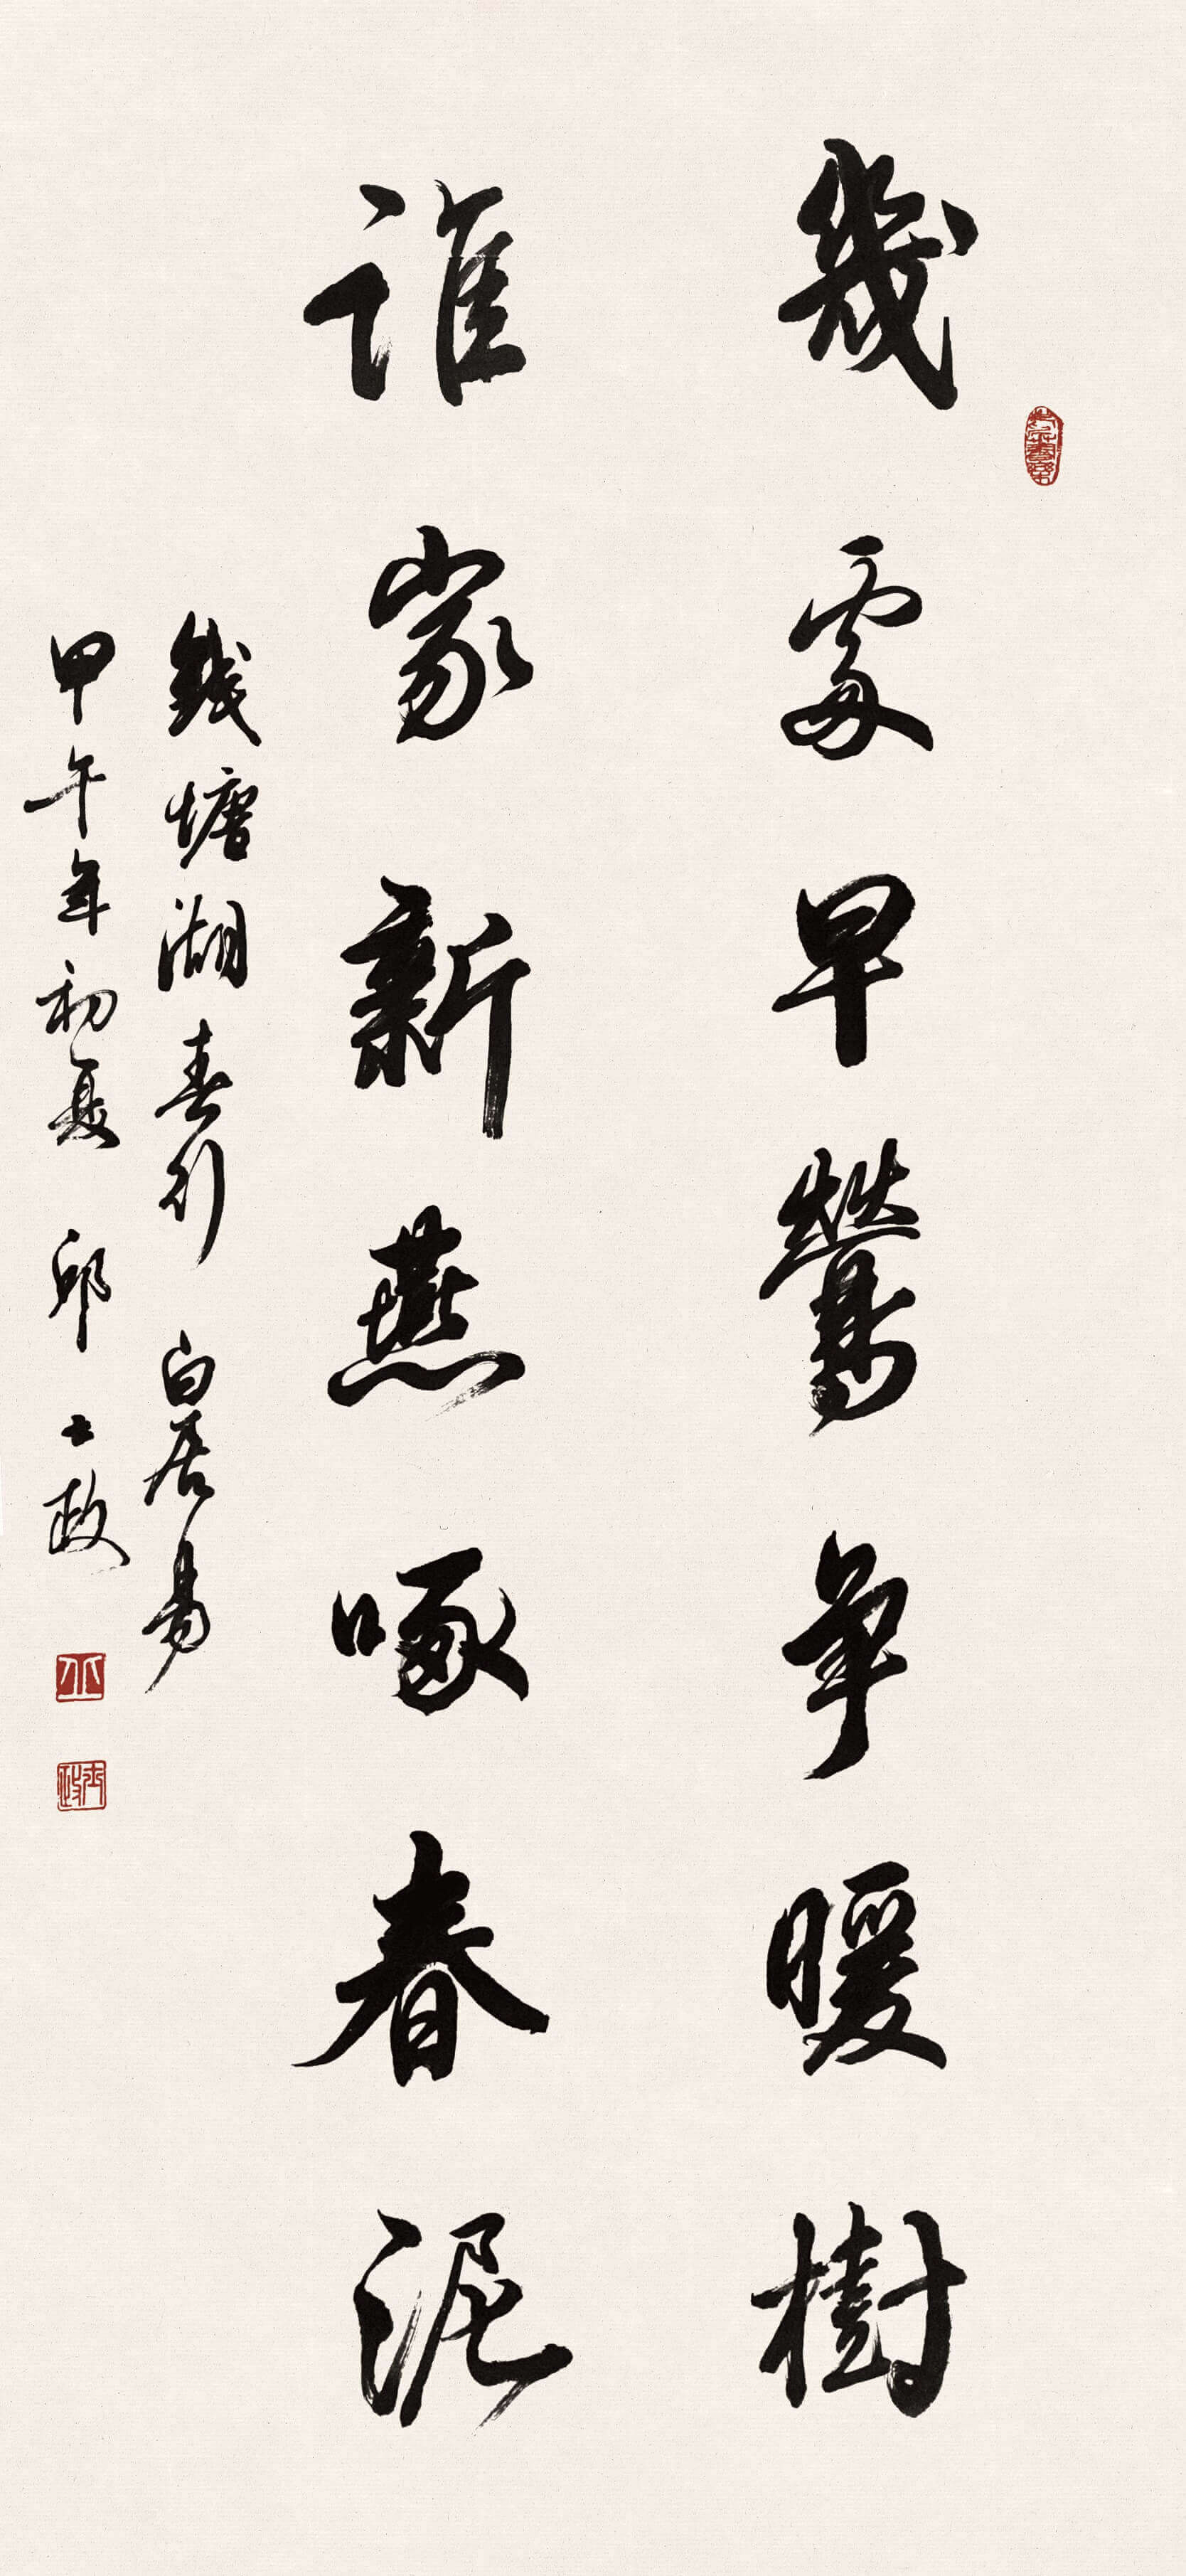 幾處早鶯爭暖樹
誰家新燕啄春泥
錢塘湖春行 白居易
甲午年初夏 邱士政